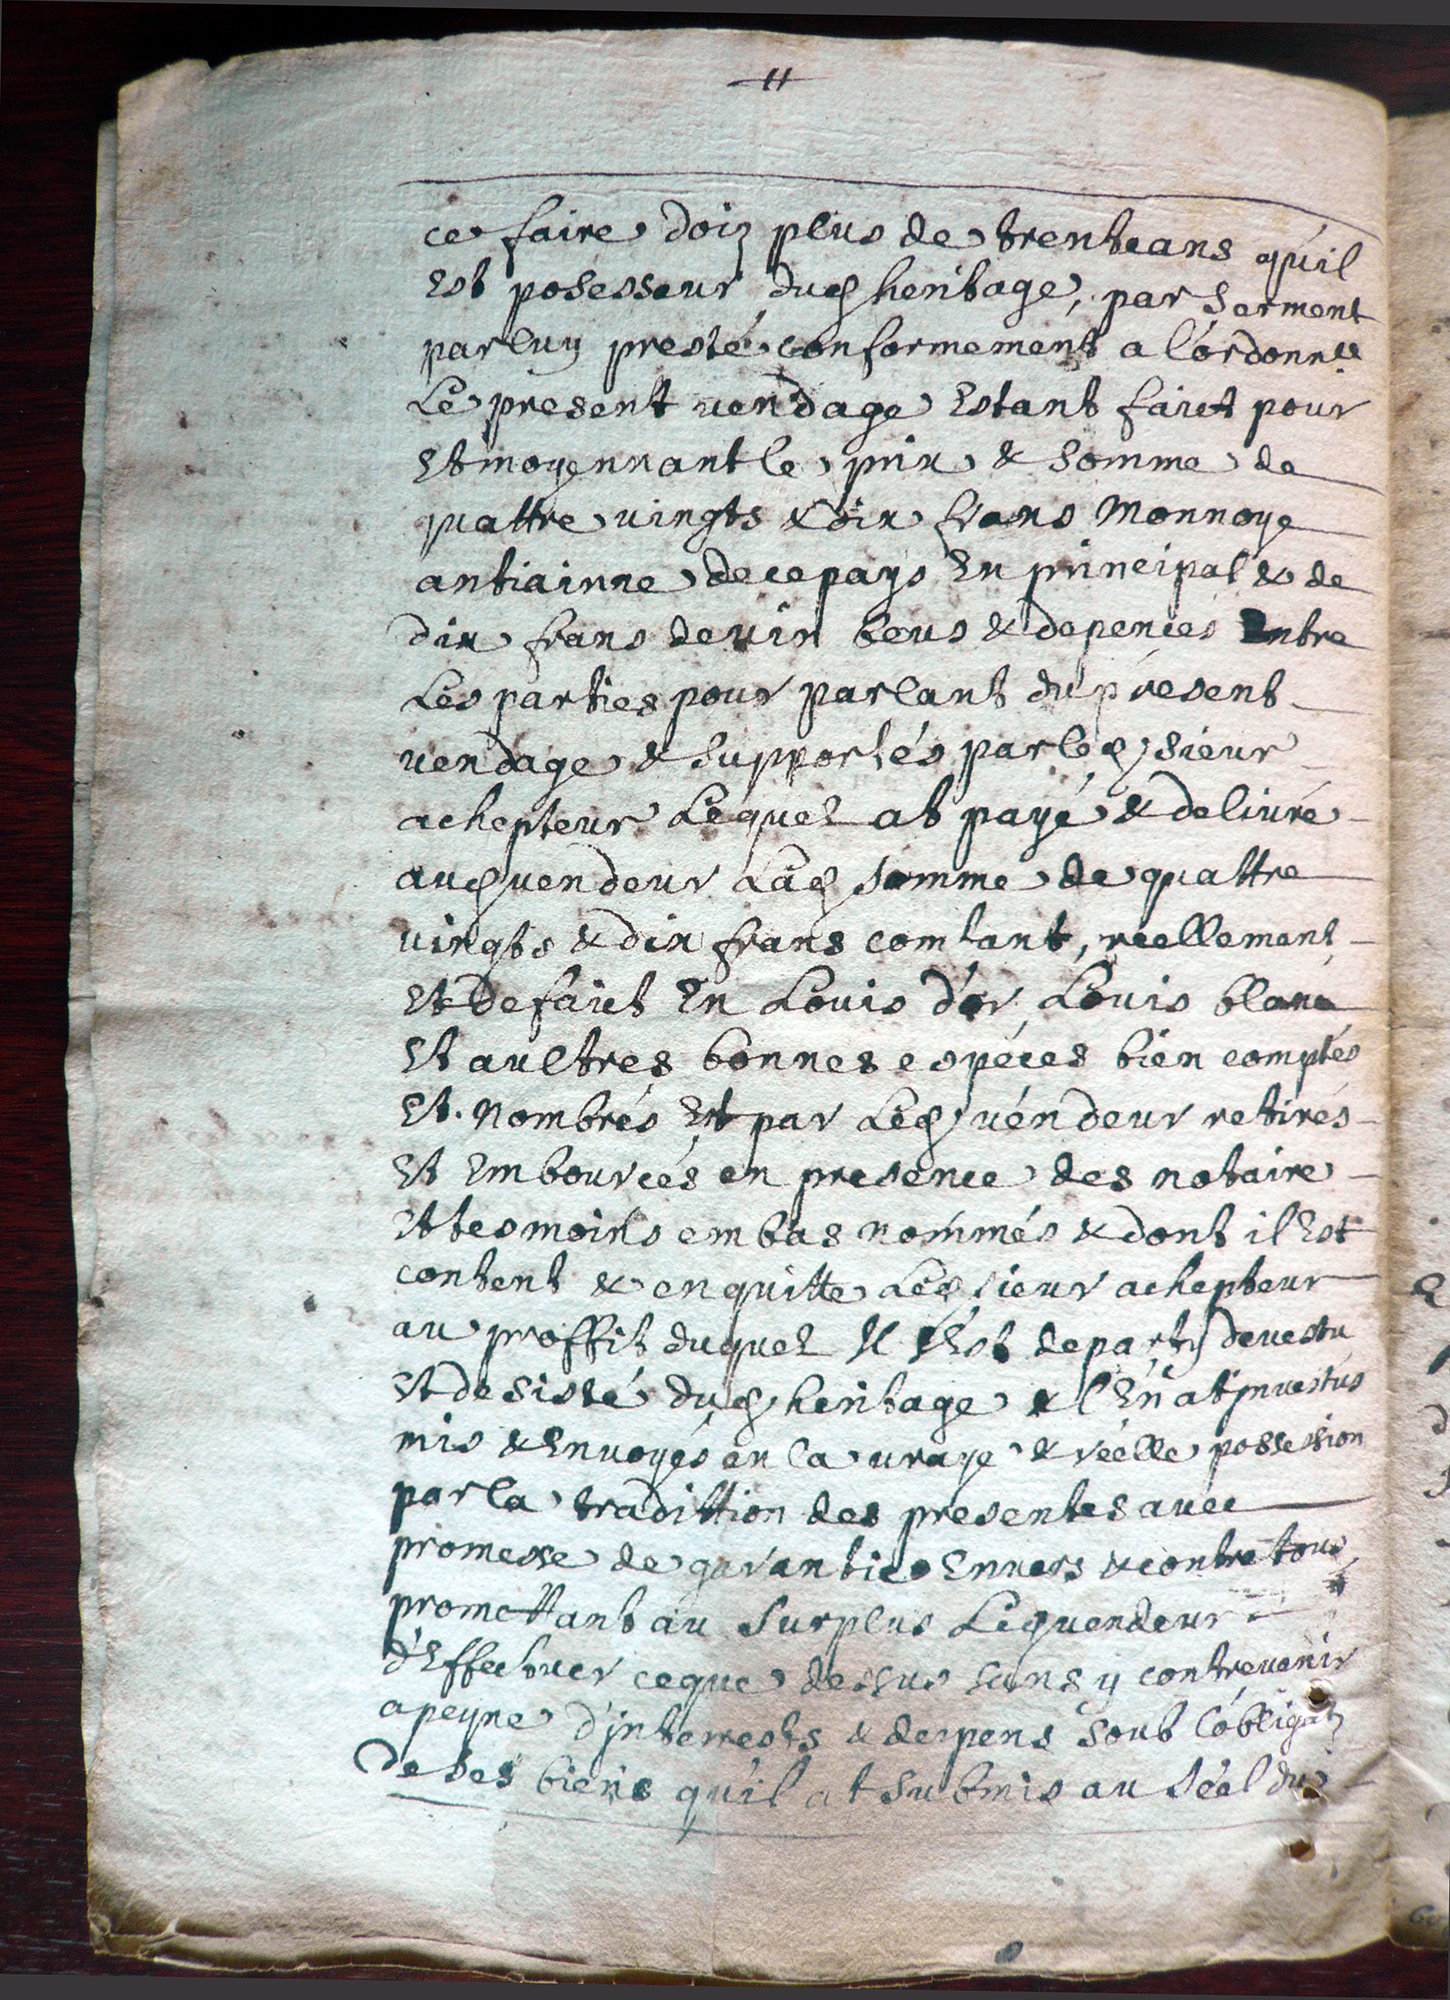 11
ce faire doiz plus de trenteans qu'il
Est posesseur dud heritage, par serment
parluy presté conformement a l'ordonnce
Le present vendage Estant faict pour
Et moyennant le prix & somme de
quattre vingts & dix frans Monnoye
antiainne de ce pays En principal & de
dix frans de vin beus & depences Entre
Les parties pour parlant du present
vendage & supportés par led sieur
achepteur Lequel at payé & delivré
aud vendeur Lad somme de quattre
vingts & dix frans comtant, réellement
Et de faict En Louis d'or Louis blanc
Et aultres bonnes espéces bien comptés
Et nombrés Et par Led véndeur retirés
Et Emboursés en presence des notaire
Et tesmoins embas nommés & dont il Est
content & en quitte Led sieur achepteur
au proffit duquel Il s'Est departy devestu
Et desisté dud heritage & l'En at jnvestus
mis & Envoyés en la vraye & réelle possession
par la tradittion des presentes avec
promesse de garantie Envers & contre tous
promettant au surplus Led vendeur
d'Effectuer ce que dessus sans y contrevenir
a peyne d'jnterrests & despens soub l'óbligat
De ses biens qu'il at submis au séel du